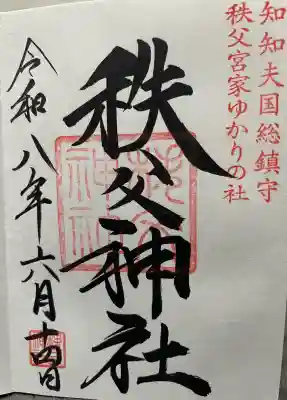 知知夫国総鎮守
秩父宮家ゆかりの社
秩父神社
令和八年六月十四日